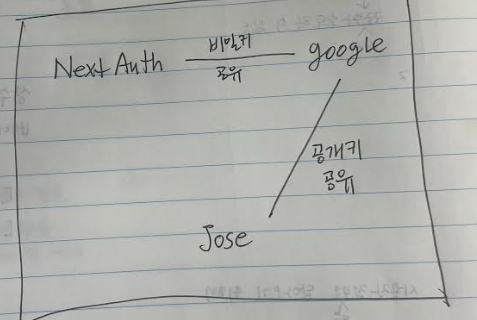 Next Auth
비밀키
공유
google
공개키
공유
Jose